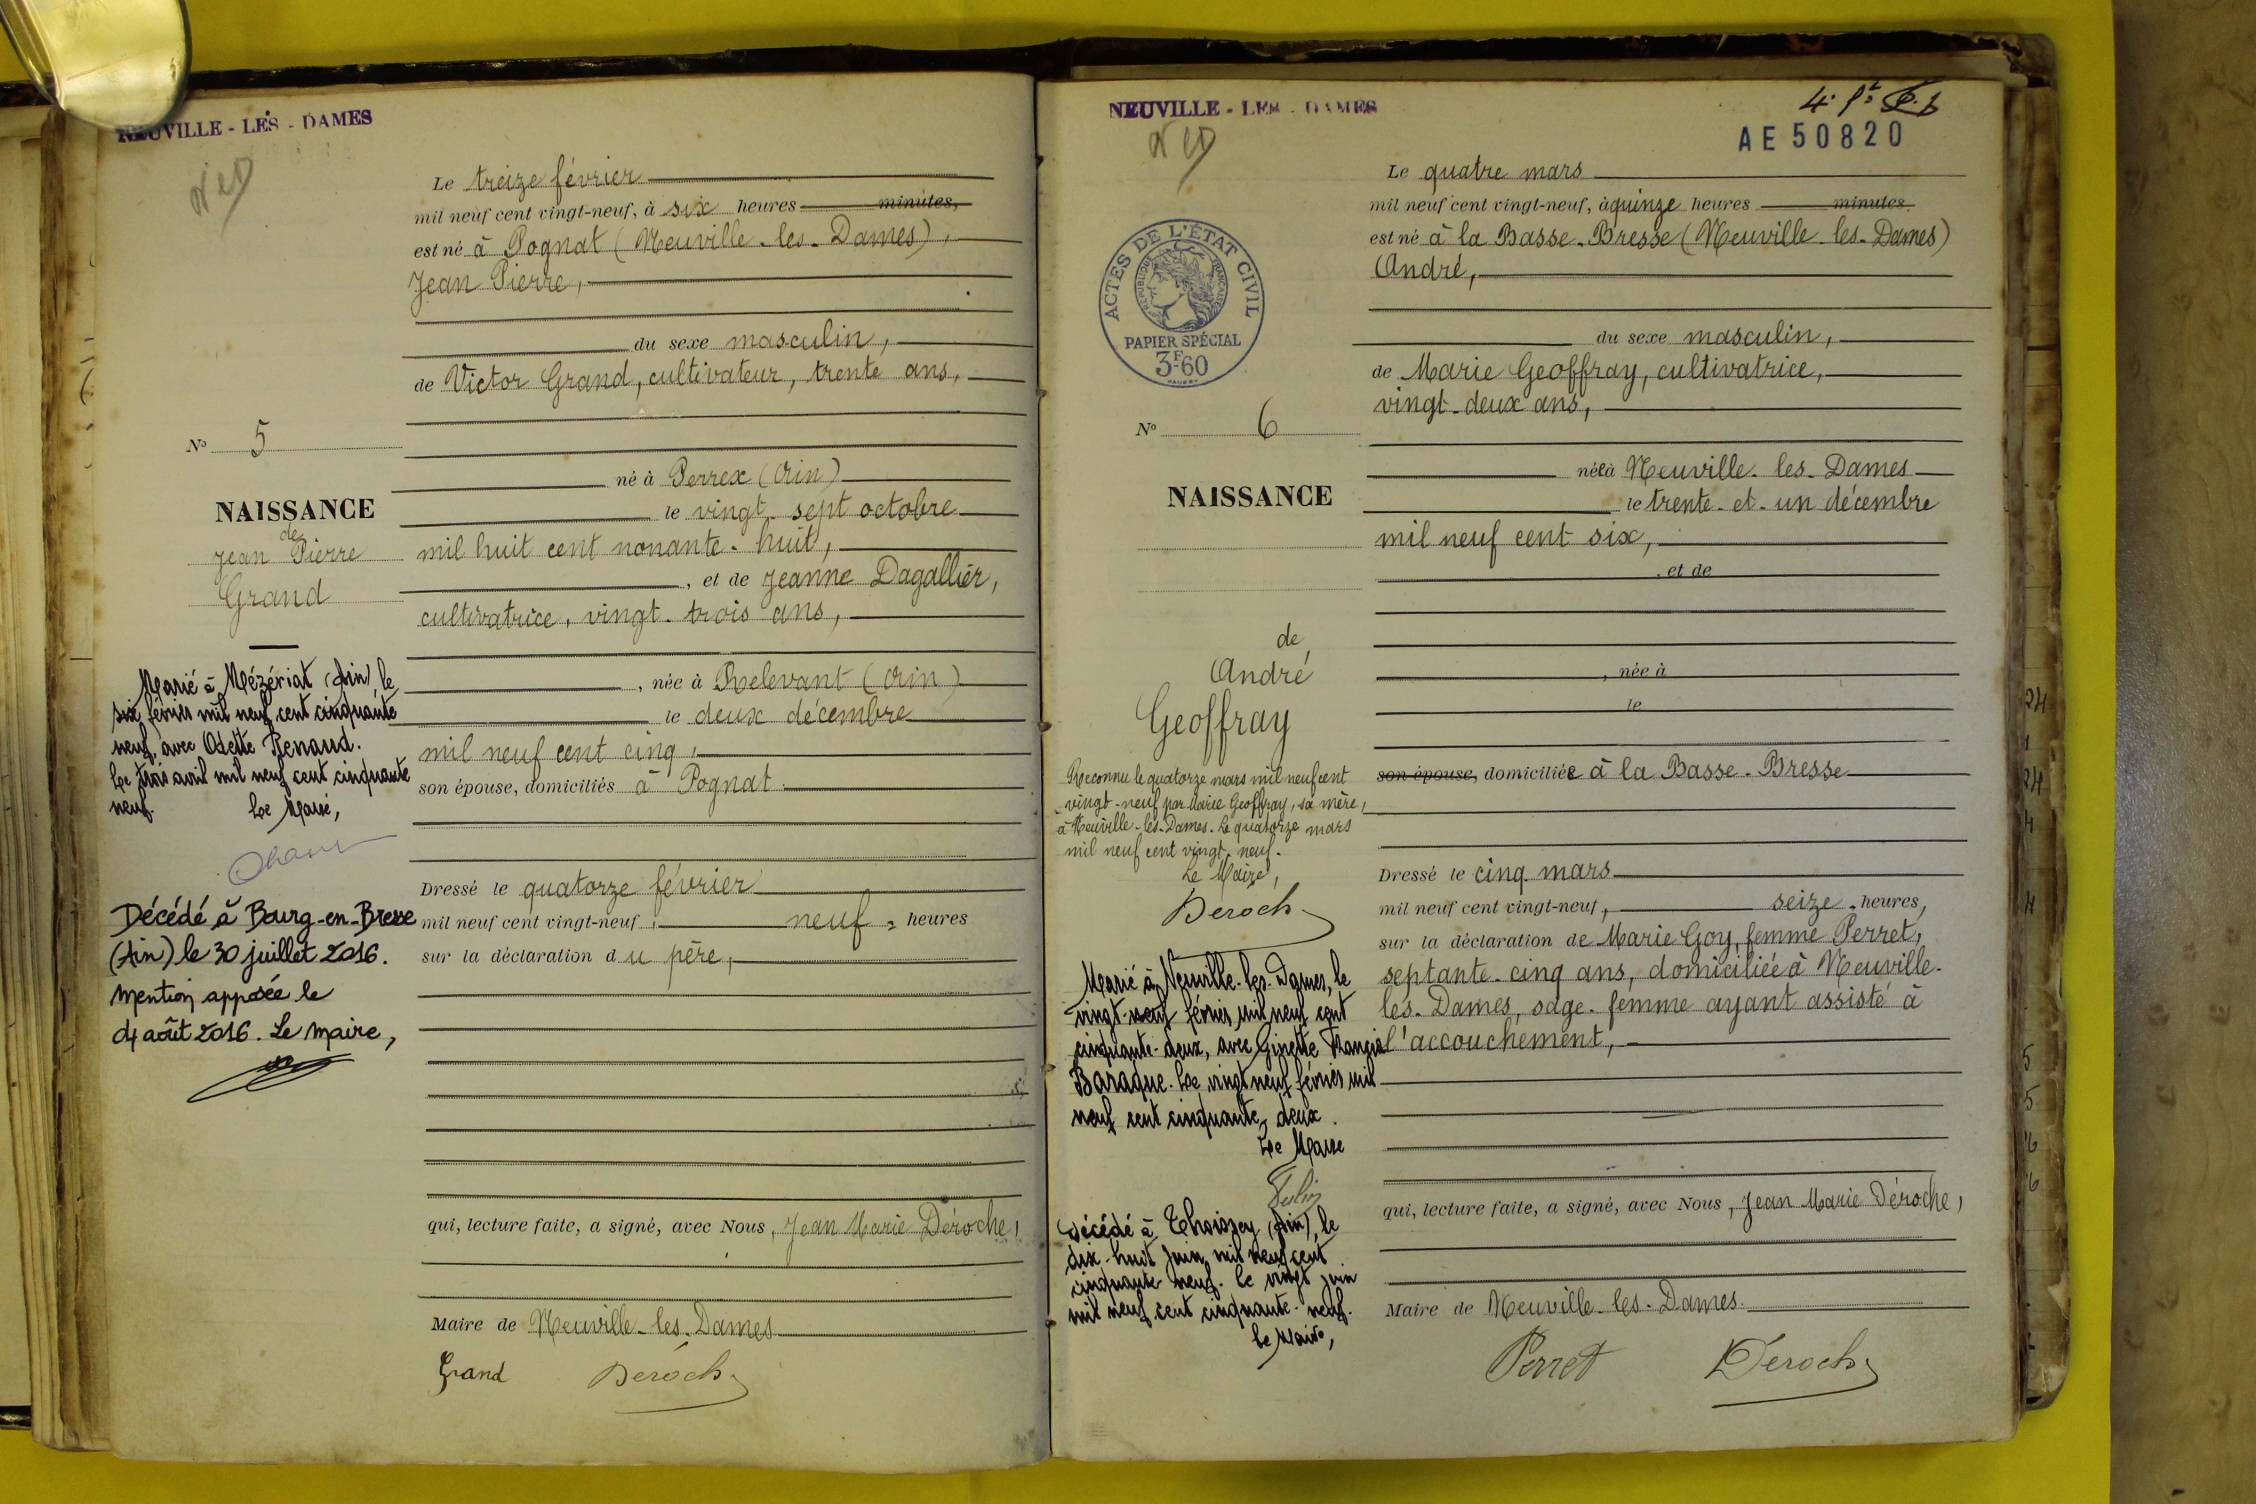 NEUVILLE - LES - DAMES
Le treize février
mil neuf cent vingt-neuf, à six heures minutes,
est né à Pognat (Neuville-les-Dames),
Jean Pierre,
du sexe masculin,
de Victor Grand, cultivateur, trente ans,
né à Perrex (Ain)
le vingt-sept octobre
mil huit cent nonante-huit,
, et de Jeanne Dagallier,
cultivatrice, vingt-trois ans,
, née à Relevant (Ain)
le deux décembre
mil neuf cent cinq,
son épouse, domiciliés à Pognat.
Dressé le quatorze février
mil neuf cent vingt-neuf, neuf heures
sur la déclaration du père,
qui, lecture faite, a signé, avec Nous, Jean Marie Déroche,
Maire de Neuville-les-Dames
Grand Déroche
No 5
NAISSANCE
de
Jean Pierre
Grand
Marié à Mézériat (Ain) le
six février mil neuf cent cinquante
neuf, avec Odette Renaud.
Le trois avril mil neuf cent cinquante
neuf. Le Maire,
Décédé à Bourg-en-Bresse
(Ain) le 30 juillet 2016.
Mention apposée le
04 août 2016. Le Maire,
NEUVILLE - LES - DAMES
AE 50820
ACTES DE L'ÉTAT CIVIL
RÉPUBLIQUE FRANÇAISE
PAPIER SPÉCIAL
3F60
Le quatre mars
mil neuf cent vingt-neuf, à quinze heures minutes.
est né à la Basse-Bresse (Neuville-les-Dames)
André,
du sexe masculin,
de Marie Geoffray, cultivatrice,
vingt-deux ans,
née à Neuville-les-Dames
le trente-et-un décembre
mil neuf cent six,
, et de
, née à
le
son épouse, domiciliée à la Basse-Bresse
Dressé le cinq mars
mil neuf cent vingt-neuf, seize heures,
sur la déclaration de Marie Goy, femme Perret,
septante-cinq ans, domiciliée à Neuville-
les-Dames, sage-femme ayant assisté à
l'accouchement,
qui, lecture faite, a signé, avec Nous, Jean Marie Déroche,
Maire de Neuville-les-Dames.
Perret Déroche
No 6
NAISSANCE
de
André
Geoffray
Reconnu le quatorze mars mil neuf cent
vingt-neuf par Marie Geoffray, sa mère,
à Neuville-les-Dames. Le quatorze mars
mil neuf cent vingt-neuf.
Le Maire,
Déroche
Marié à Neuville-les-Dames, le
vingt-neuf février mil neuf cent
cinquante-deux, avec Ginette
Baraque. Le vingt neuf février mil
neuf cent cinquante-deux.
Le Maire
Décédé à Thoissey (Ain), le
dix-huit juin mil neuf cent
cinquante-neuf. Le vingt juin
mil neuf cent cinquante-neuf.
Le Maire,
24
1
24
4
4
5
5
6
6